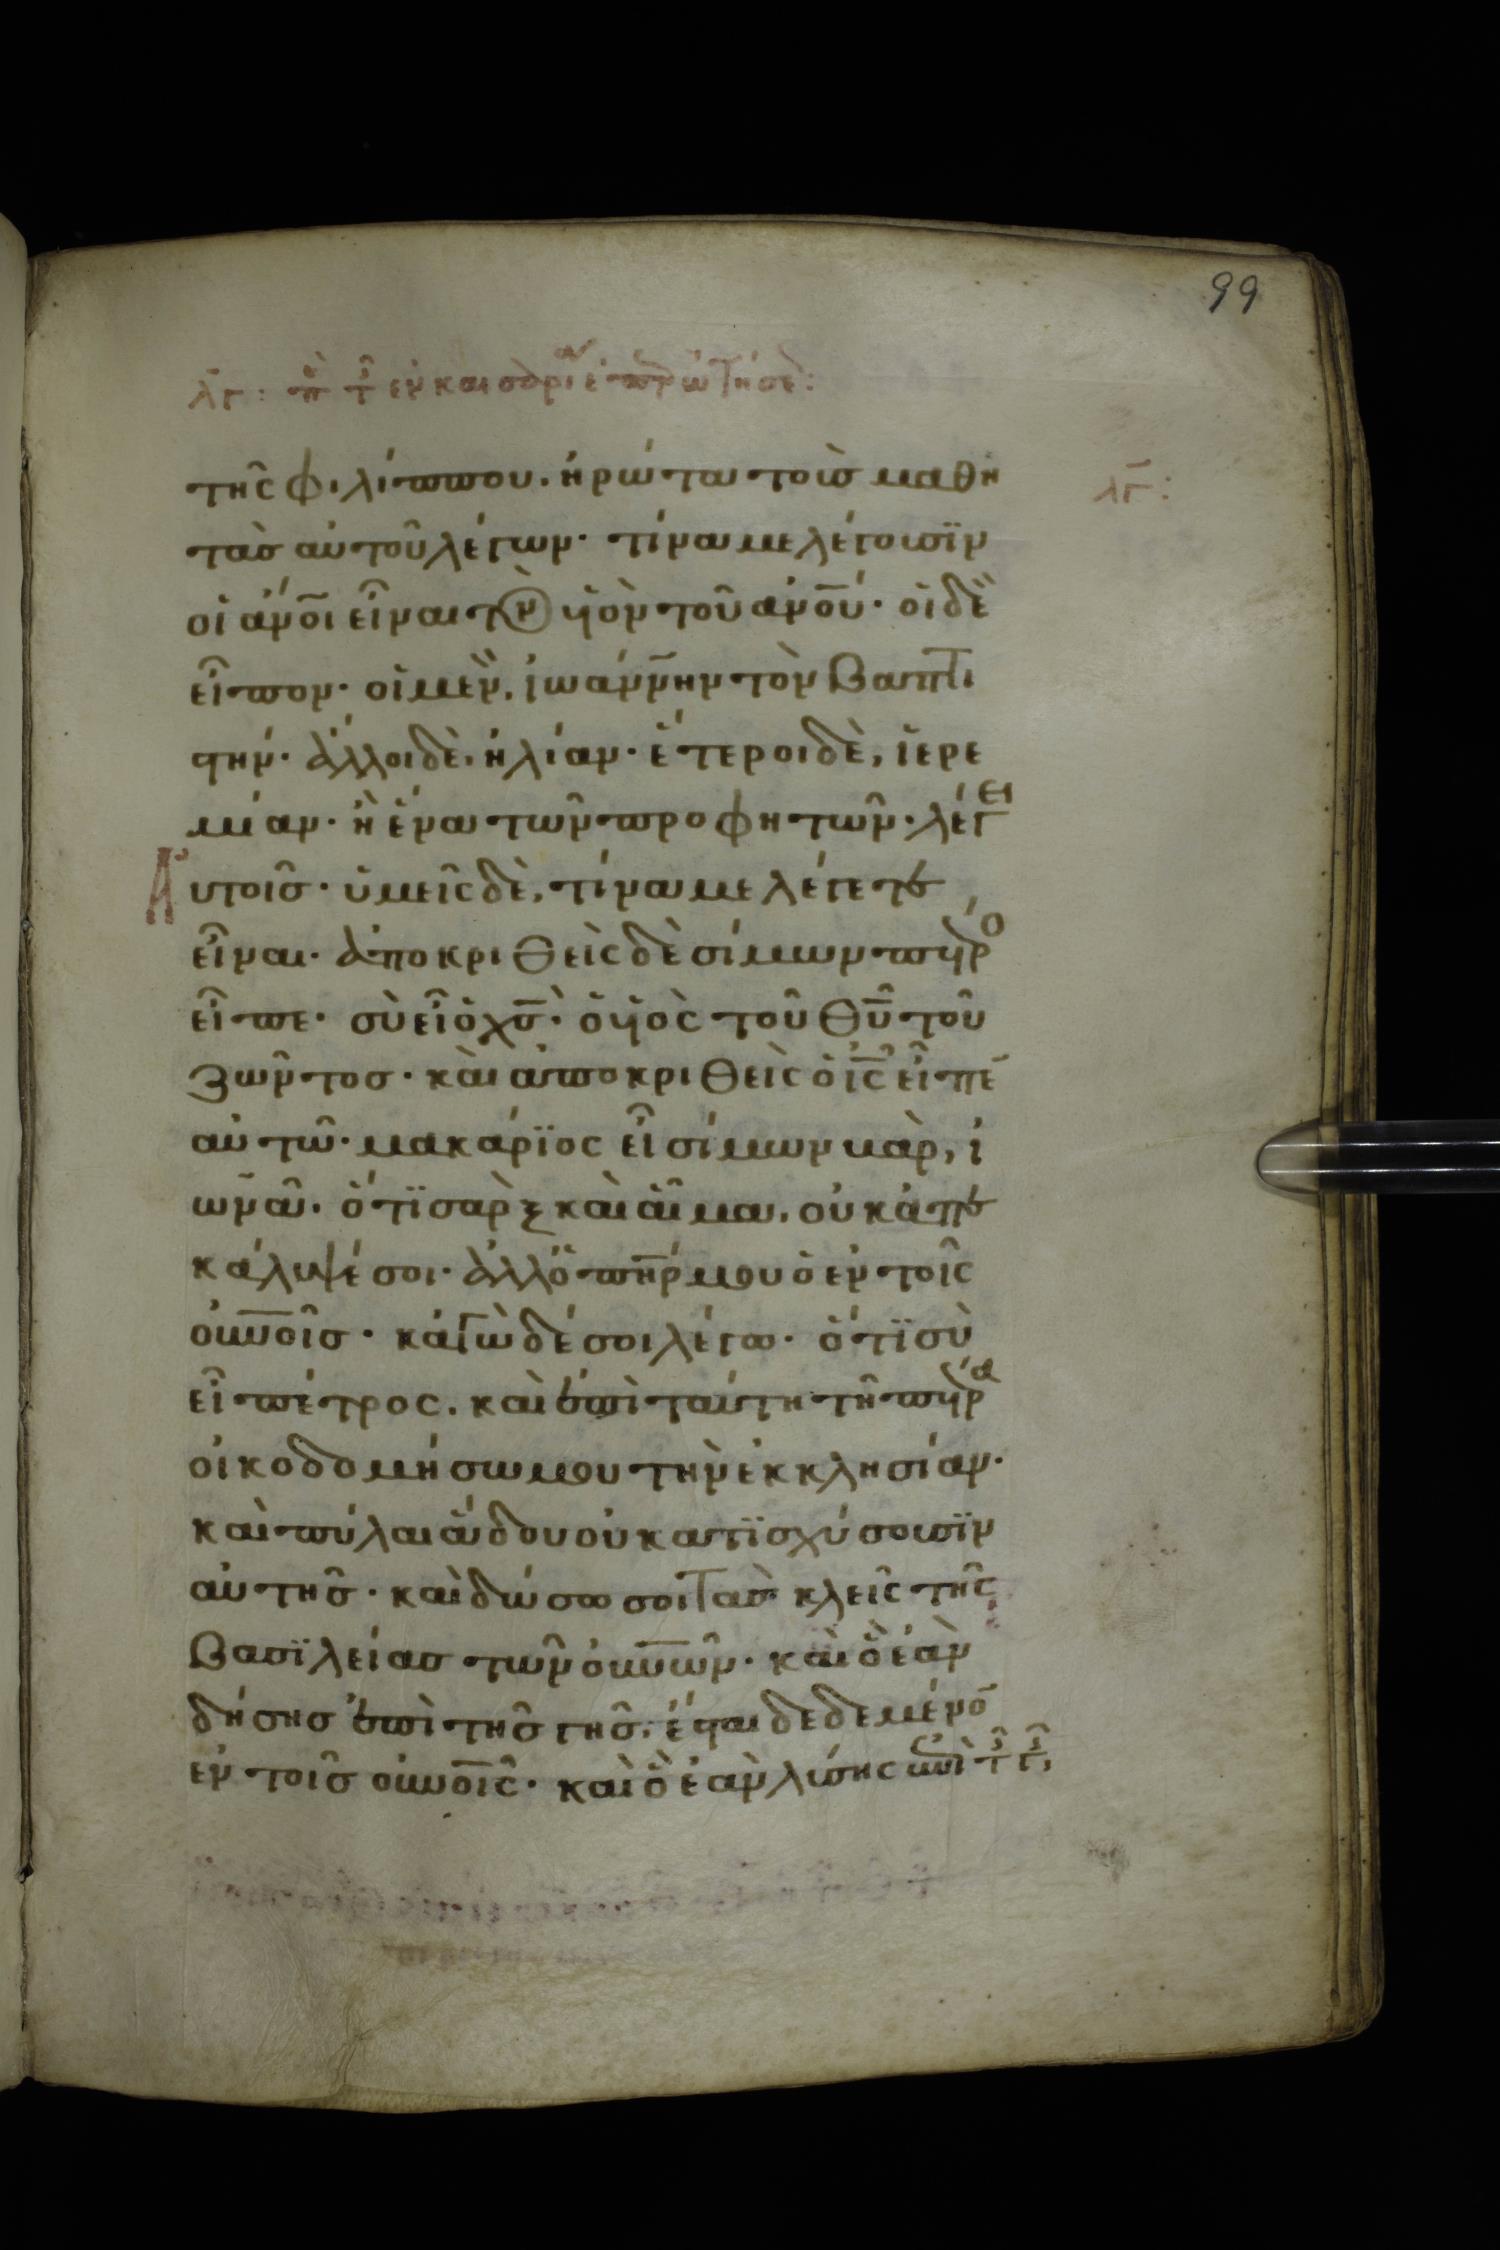 99
λγ: π τ ἐν καισαρία ἐπερωτήσε:
λγ:
τῆς φιλίππου. ἠρώτα τοὺς μαθη
τὰσ αὐτοῦ λέγων· τίνα με λέγουσϊν
οἱ ἄνοι εἶναι τὸν ὑὸν τοῦ ἀνου· οἱ δὲ
εἶπον· οἱ μὲν, ἰωάννην τὸν βαπτι
στήν· ἄλλοι δὲ, ἠλίαν· ἕτεροι δὲ, ἱερε
μίαν· ἢ ἕνα τῶν προφητῶν· λέγει
Αυτοῖσ· ὑμεῖς δὲ, τίνα με λέγετε
εἶναι· ἀποκριθεὶς δὲ σίμων πέτρο
εἶπε· σὺ εἶ ὁ χσ· ὁ ὑὸς τοῦ θυ τοῦ
ζῶντοσ· καὶ ἀποκριθεὶς ὁ ις εἶπε
αὐτῶ· μακάρϊος εἶ σίμων βὰρ, ἰ
ωνᾶ. ὅτϊ σαρξ καὶ αἷμα, οὐκ ἀπε
κάλυψέ σοι· ἀλλ' ὁ πηρ μου ὁ ἐν τοῖς
οὐνοῖσ· κἀγὼ δέ σοι λέγω· ὅτϊ σὺ
εἶ πέτρος. καὶ ἐπὶ ταύτη τῆ πέτρα
οἰκοδομήσω μου τὴν ἐκκλησίαν·
καὶ πύλαι ἅδου οὐ κατϊσχύσουσϊν
αὐτῆσ· καὶ δώσω σοι τὰσ κλεῖς τῆς
βασϊλείασ τῶν οὐνῶν· καὶ ὃ ἐὰν
δήσησ ἐπὶ τῆσ γῆσ, ἔσται δεδεμένο
ἐν τοῖσ οὐνοῖς· καὶ ὃ ἐὰν λύσης ἐπὶ τ γ,